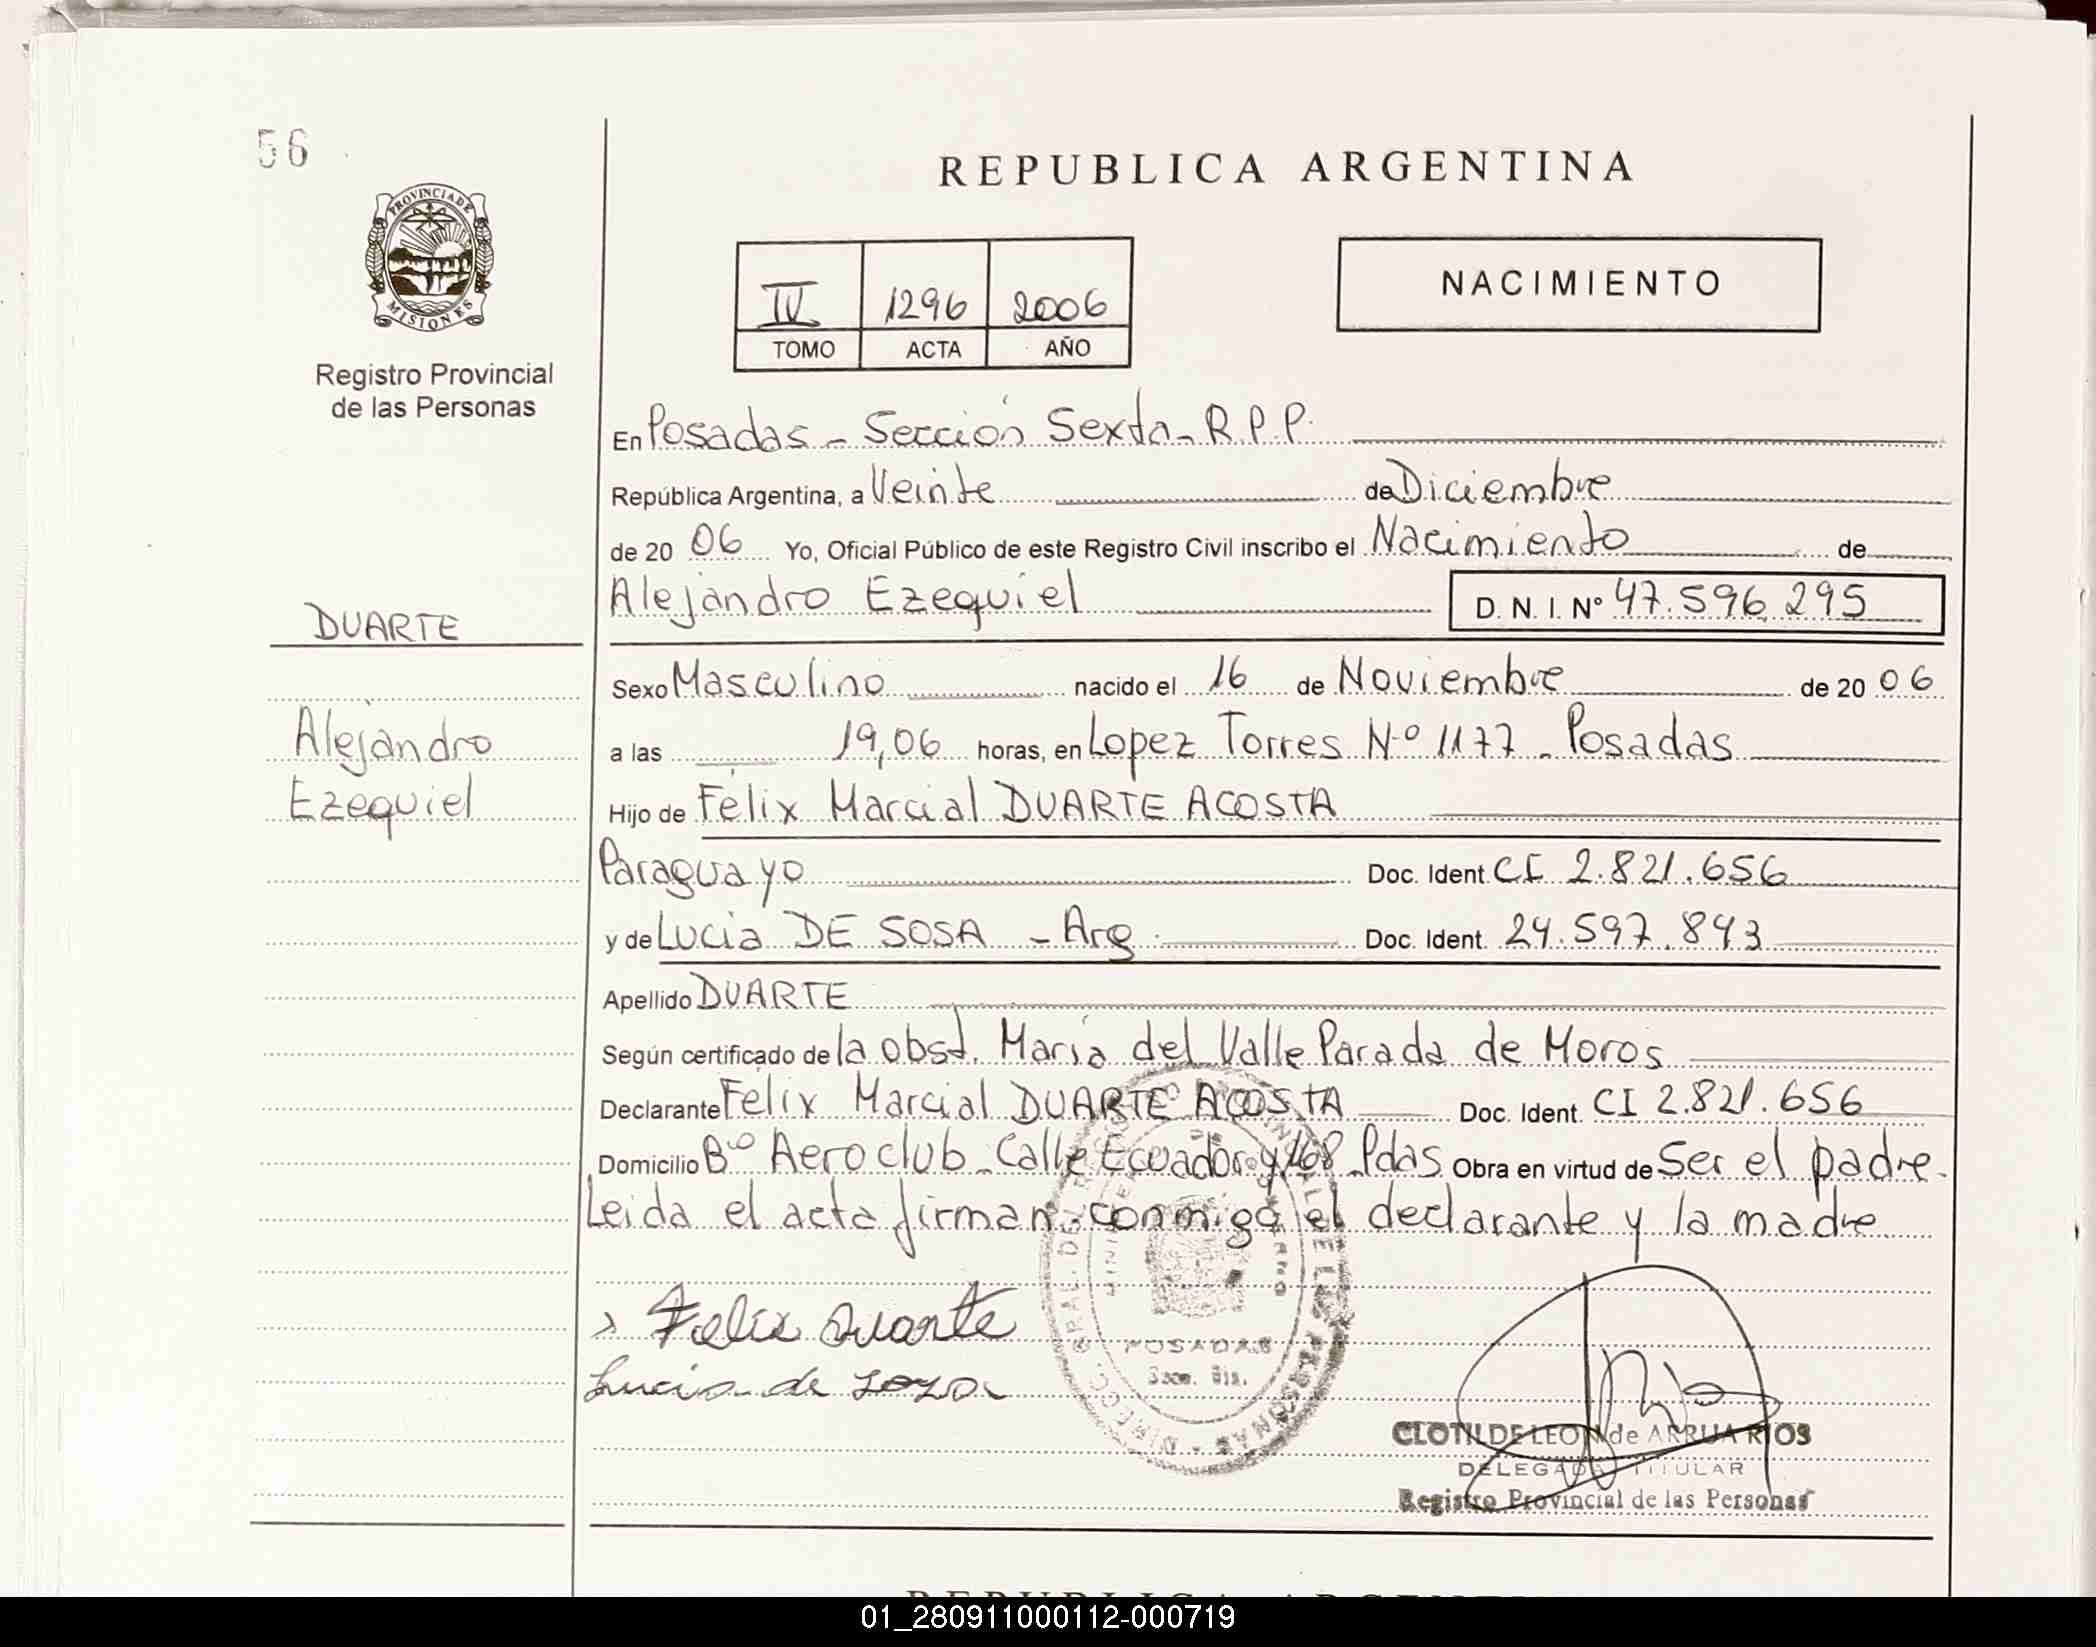 56
REPUBLICA ARGENTINA
PROVINCIA DE
MISIONES
Registro Provincial
de las Personas
IV 1296 2006
TOMO ACTA AÑO
NACIMIENTO
En Posadas - Sección Sexta - R.P.P.
República Argentina, a Veinte de Diciembre
de 20 06 Yo, Oficial Público de este Registro Civil inscribo el Nacimiento de
Alejandro Ezequiel D. N. I. Nº 47.596.295
DUARTE
Alejandro
Ezequiel
Sexo Masculino nacido el 16 de Noviembre de 20 06
a las 19,06 horas, en Lopez Torres Nº 1177 - Posadas
Hijo de Félix Marcial DUARTE ACOSTA
Paraguayo Doc. Ident. CI 2.821.656
y de Lucia DE SOSA - Arg. Doc. Ident. 24.597.843
Apellido DUARTE
Según certificado de la obst. María del Valle Parada de Moros
Declarante Félix Marcial DUARTE ACOSTA Doc. Ident. CI 2.821.656
Domicilio Bº Aeroclub - Calle Ecuador y 168 - Pdas Obra en virtud de Ser el padre.
Leida el acta firman conmigo el declarante y la madre
Felix Duarte
Lucia de Sosa
POSADAS
CLOTILDE LEON de ARRUA RIOS
DELEGADA TITULAR
Registro Provincial de las Personas
01_280911000112-000719